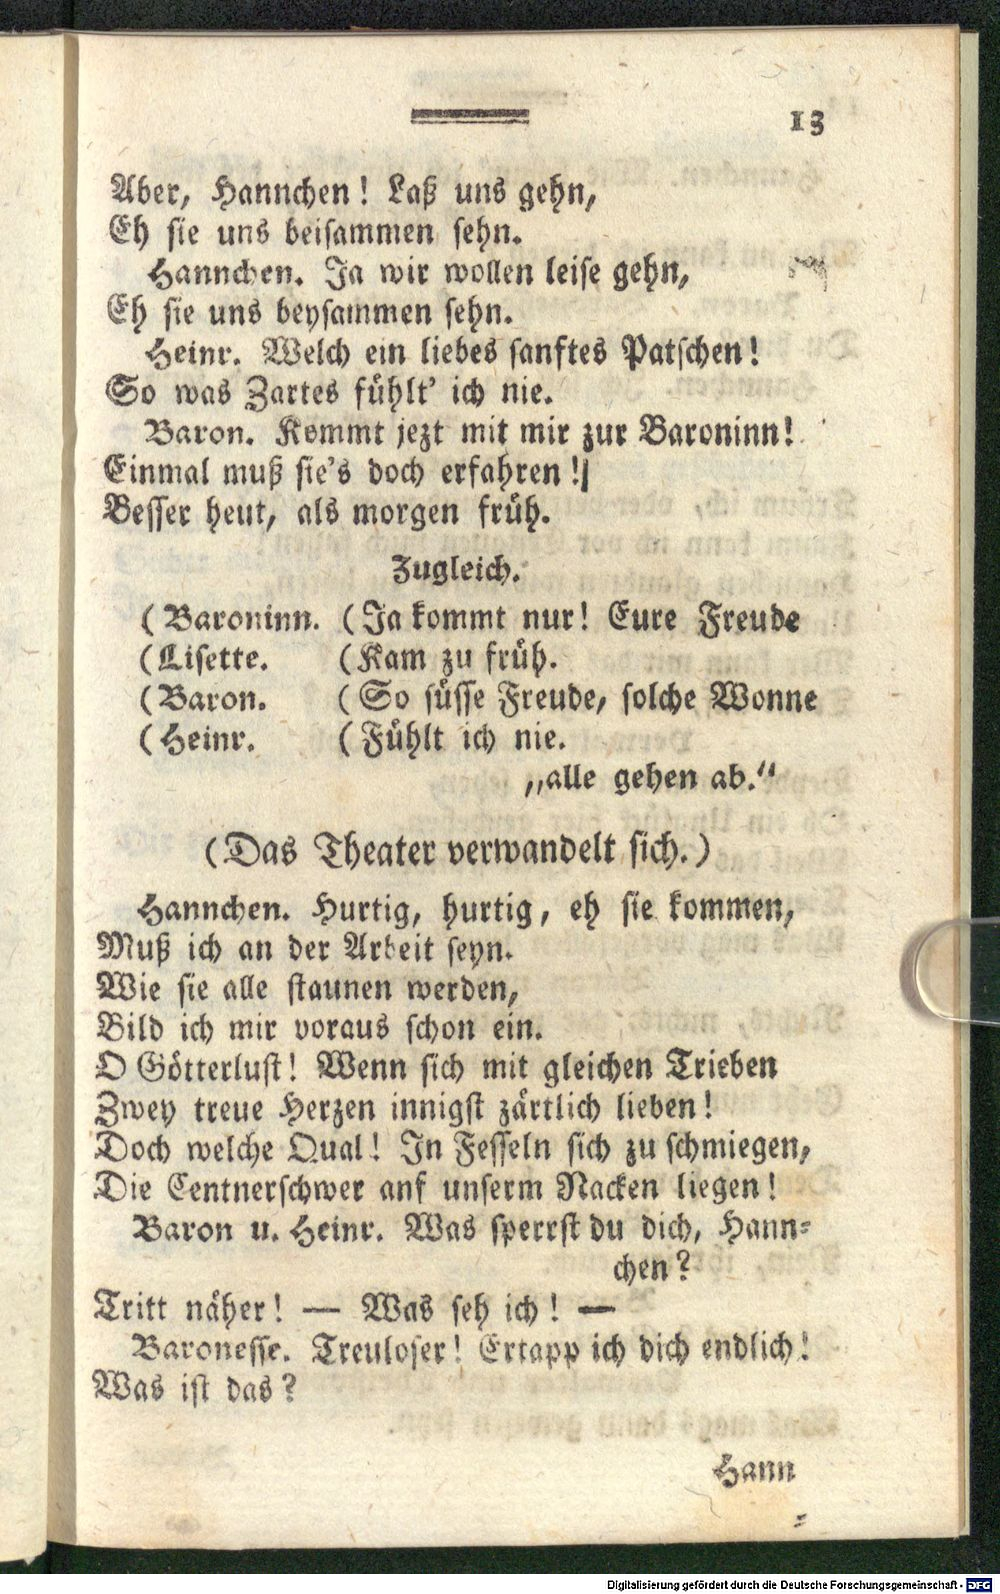 13
Aber, Hannchen! Laß uns gehn,
Eh sie uns beisammen sehn.
Hannchen. Ja wir wollen leise gehn,
Eh sie uns beysammen sehn.
Heinr. Welch ein liebes sanftes Patschen!
So was Zartes fühlt' ich nie.
Baron. Kommt jezt mit mir zur Baroninn!
Einmal muß sie's doch erfahren!
Besser heut, als morgen früh.
Zugleich.
(Baroninn. (Ja kommt nur! Eure Freude
(Lisette. (Kam zu früh.
(Baron. (So süsse Freude, solche Wonne
(Heinr. (Fühlt ich nie.
„alle gehen ab.“
(Das Theater verwandelt sich.)
Hannchen. Hurtig, hurtig, eh sie kommen,
Muß ich an der Arbeit seyn.
Wie sie alle staunen werden,
Bild ich mir voraus schon ein.
O Götterlust! Wenn sich mit gleichen Trieben
Zwey treue Herzen innigst zärtlich lieben!
Doch welche Qual! In Fesseln sich zu schmiegen,
Die Centnerschwer anf unserm Nacken liegen!
Baron u. Heinr. Was sperrst du dich, Hann-
chen?
Tritt näher! — Was seh ich! —
Baronesse. Treuloser! Ertapp ich dich endlich!
Was ist das?
Hann
=
Digitalisierung gefördert durch die Deutsche Forschungsgemeinschaft - DFG